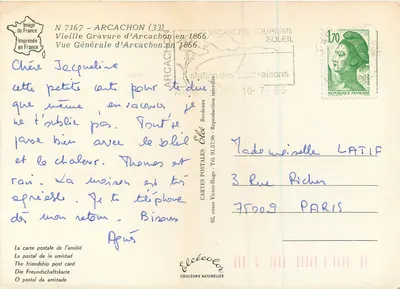 Image
de France
Imprimée
en France
N 7167 - ARCACHON (33)
Vieille Gravure d'Arcachon en 1866
Vue Générale d'Arcachon en 1866.
ARCACHON
VACANCES TOURISME
SOLEIL
station des saisons
10-7-85
1,70
Chère Jacqueline
cette petite carte pour te dire
que même en vacances je
ne t'oublie pas. Tout se
passe bien avec le soleil
et la chaleur. Thomas est
ravi. La maison est très
agréable. Je te téléphone
dès mon retour. Bisous
Agnès
CARTES POSTALES Elcé Bordeaux
92, cours Victor-Hugo - Tél. 91.37.96 - Reproduction interdite
Mademoiselle LATIF
3 Rue Richer
75009 PARIS
La carte postale de l'amitié
La postal de la amistad
The friendship post card
Die Freundschaftskarte
O postal da amizade
elcécolor
COULEURS NATURELLES